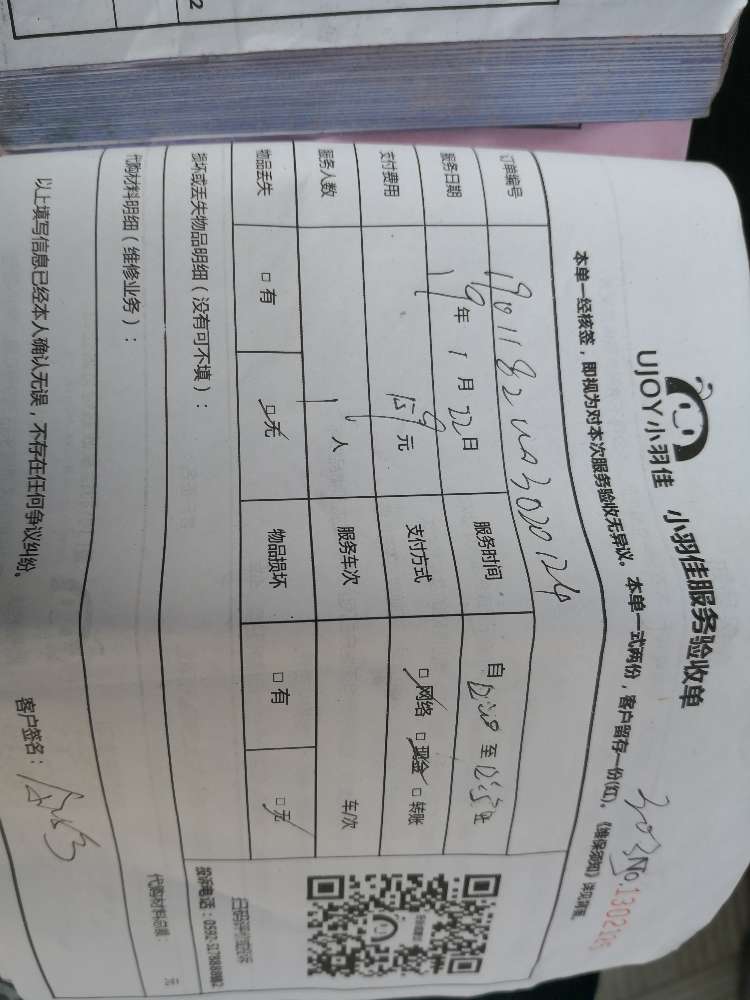 2
UJOY小羽佳
小羽佳服务验收单
本单一经核签，即视为对本次服务验收无异议。本单一式两份，客户留存一份(红)。《维保须知》详见背面
303
No.1302
订单编号
服务日期 19年1月22日 服务时间 自 至
支付费用 元 支付方式 □网络 □现金 □转账
服务人数 1人 服务车次 车/次
物品丢失 □有 □无 物品损坏 □有 □无
损坏或丢失物品明细（没有可不填）：
扫码评价或投诉
投诉电话：0592-5178888转2
代购材料明细（维修业务）：
代购材料总额： 元
以上填写信息已经本人确认无误，不存在任何争议纠纷。
客户签名：